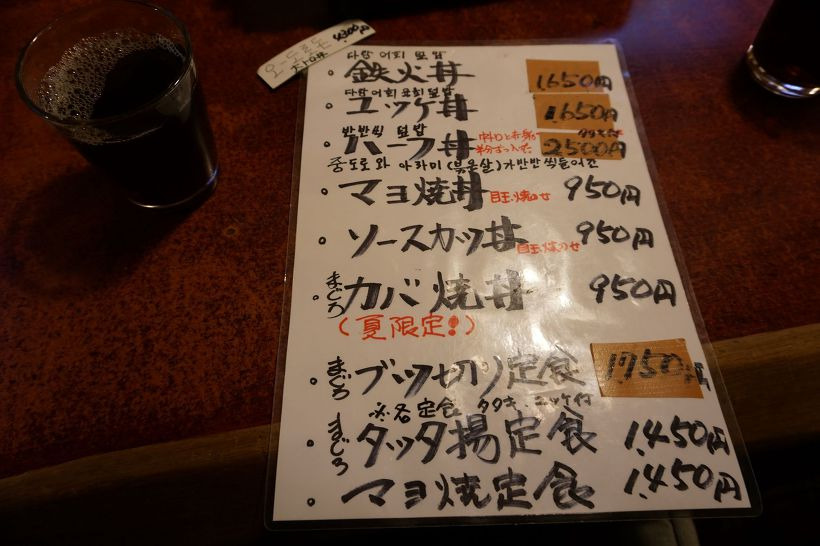 4300円
다랑어회 덮밥
・鉄火丼 1,650円
다랑어회 육회덮밥
・ユッケ丼 1,650円
반반씩 덮밥
・ハーフ丼 中トロと赤身が 半分ずつ入った 2500円
중도로와 아까미(붉은살)가 반반씩들어간
・マヨ焼丼 目玉焼のせ 950円
・ソースカツ丼 目玉焼のせ 950円
・まぐろカバ焼丼 950円
(夏限定!)
・まぐろブツ切り定食 1750円
※各定食 タタキ、ユッケ付
・まぐろタツタ揚定食 1,450円
・マヨ焼定食 1,450円